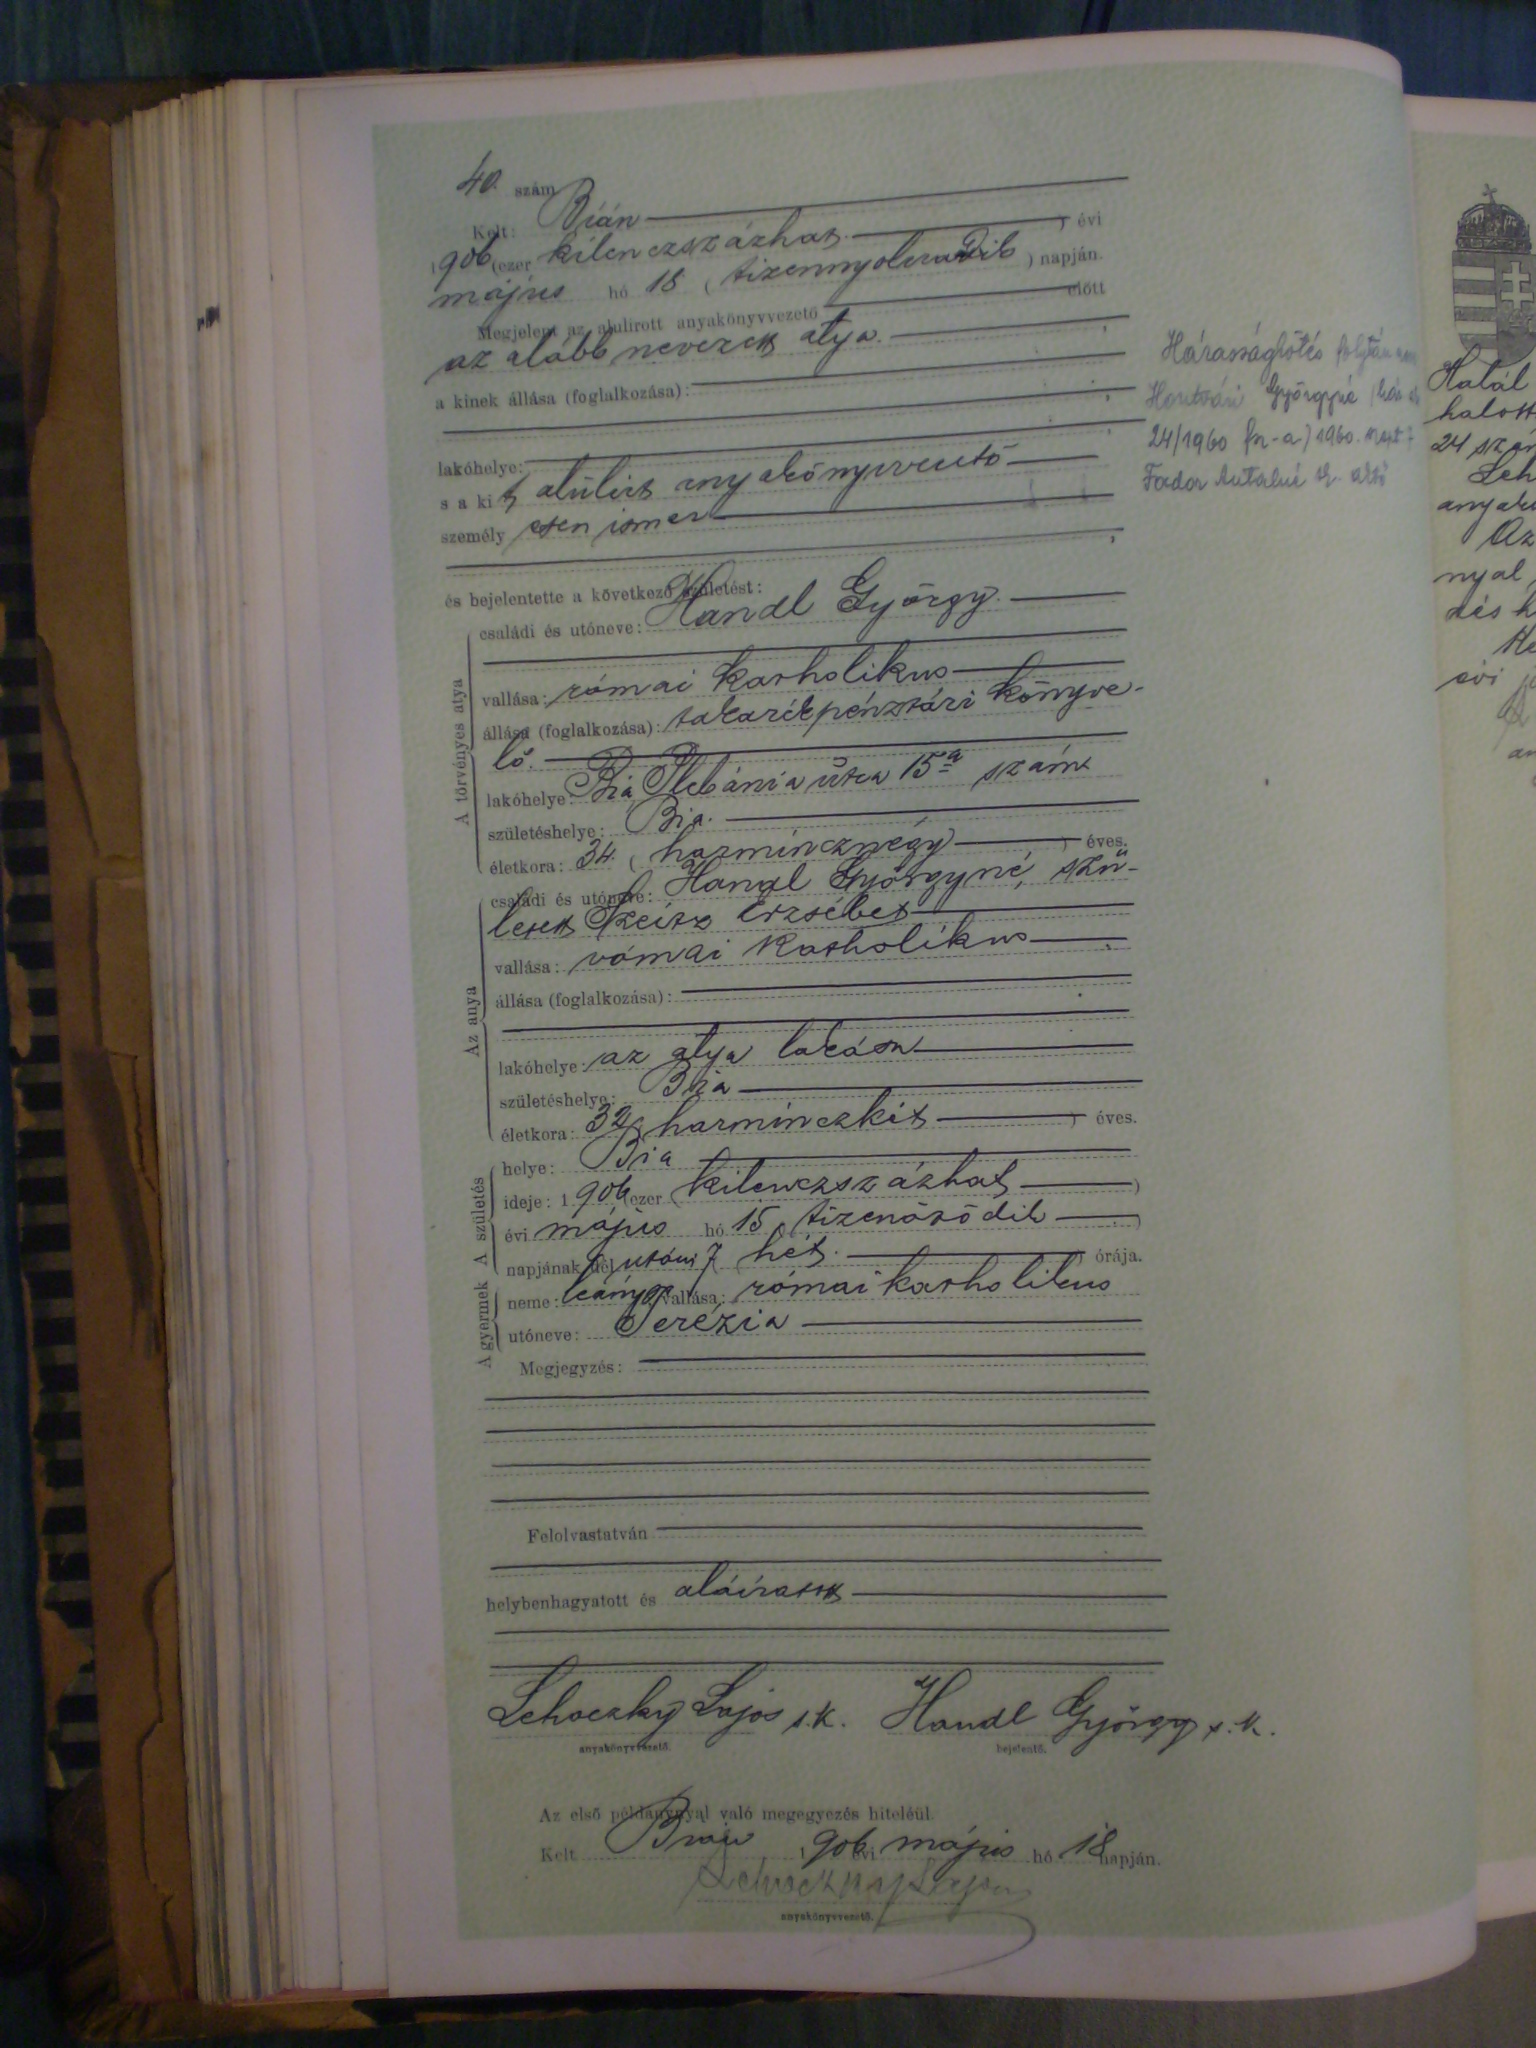 40. szám
Kelt: Bián
1906 (ezer kilenczszázhat ) évi
május hó 18 ( tizennyolczadik ) napján.
Megjelent az alulirott anyakönyvvezető előtt
az alább nevezett atya.
a kinek állása (foglalkozása):
lakóhelye:
s a kit alúlirt anyakönyvvezető
személyesen ismer
és bejelentette a következő születést:
A törvényes atya
családi és utóneve: Handl György.
vallása: római katholikus
állása (foglalkozása): takarékpénztári könyve-
lő.
lakóhelye: Bia Plebánia utca 15a szám
születéshelye: Bia.
életkora: 34. ( harmincznégy ) éves.
Az anya
családi és utóneve: Handl Györgyné, szü-
letett Erzsébet
vallása: római katholikus
állása (foglalkozása):
lakóhelye: az atya lakása
születéshelye: Bia
életkora: 32 ( harminczkét ) éves.
A születés
helye: Bia
ideje: 1906 (ezer kilenczszázhat )
évi május hó 15 ( tizenötödik )
napjának dél utáni 7 ( hét. ) órája.
A gyermek
neme: leány vallása: római katholikus
utóneve: Terézia
Megjegyzés:
Felolvastatván
helybenhagyatott és aláiratott
Lehoczky Lajos s.k. Handl György s.k.
anyakönyvvezető. bejelentő.
Az első példánynyal való megegyezés hiteléül.
Kelt Bián 1906 évi május hó 18 napján.
Lehoczky Lajos
anyakönyvvezető.
Házasságkötés folytán
Györgyné
24/1960 fn-a) 1960.
Fodor Antalné
Halál
halott
24 szám
Leh
anyakö
Az
nyal
dés h
évi